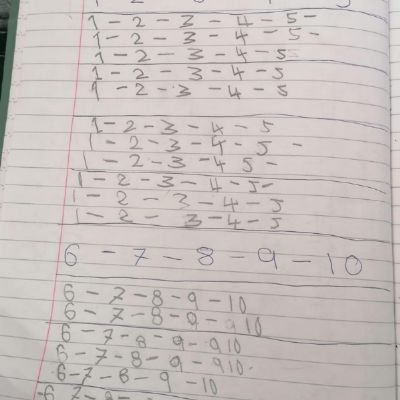 1 - 2 - 3 - 4 - 5 -
1 - 2 - 3 - 4 - 5 -
1 - 2 - 3 - 4 - 5
1 - 2 - 3 - 4 - 5
1 - 2 - 3 - 4 - 5
1 - 2 - 3 - 4 - 5
1 - 2 - 3 - 4 - 5 -
1 - 2 - 3 - 4 5 -
1 - 2 - 3 - 4 - 5 -
1 - 2 - 3 - 4 - 5
1 - 2 - 3 - 4 - 5
6 - 7 - 8 - 9 - 10
6 - 7 - 8 - 9 - 10
6 - 7 - 8 - 9 - 9 10
6 - 7 - 8 - 9 - 9 10
6 - 7 - 8 - 9 - 9 10
6 - 7 - 8 - 9 - 10